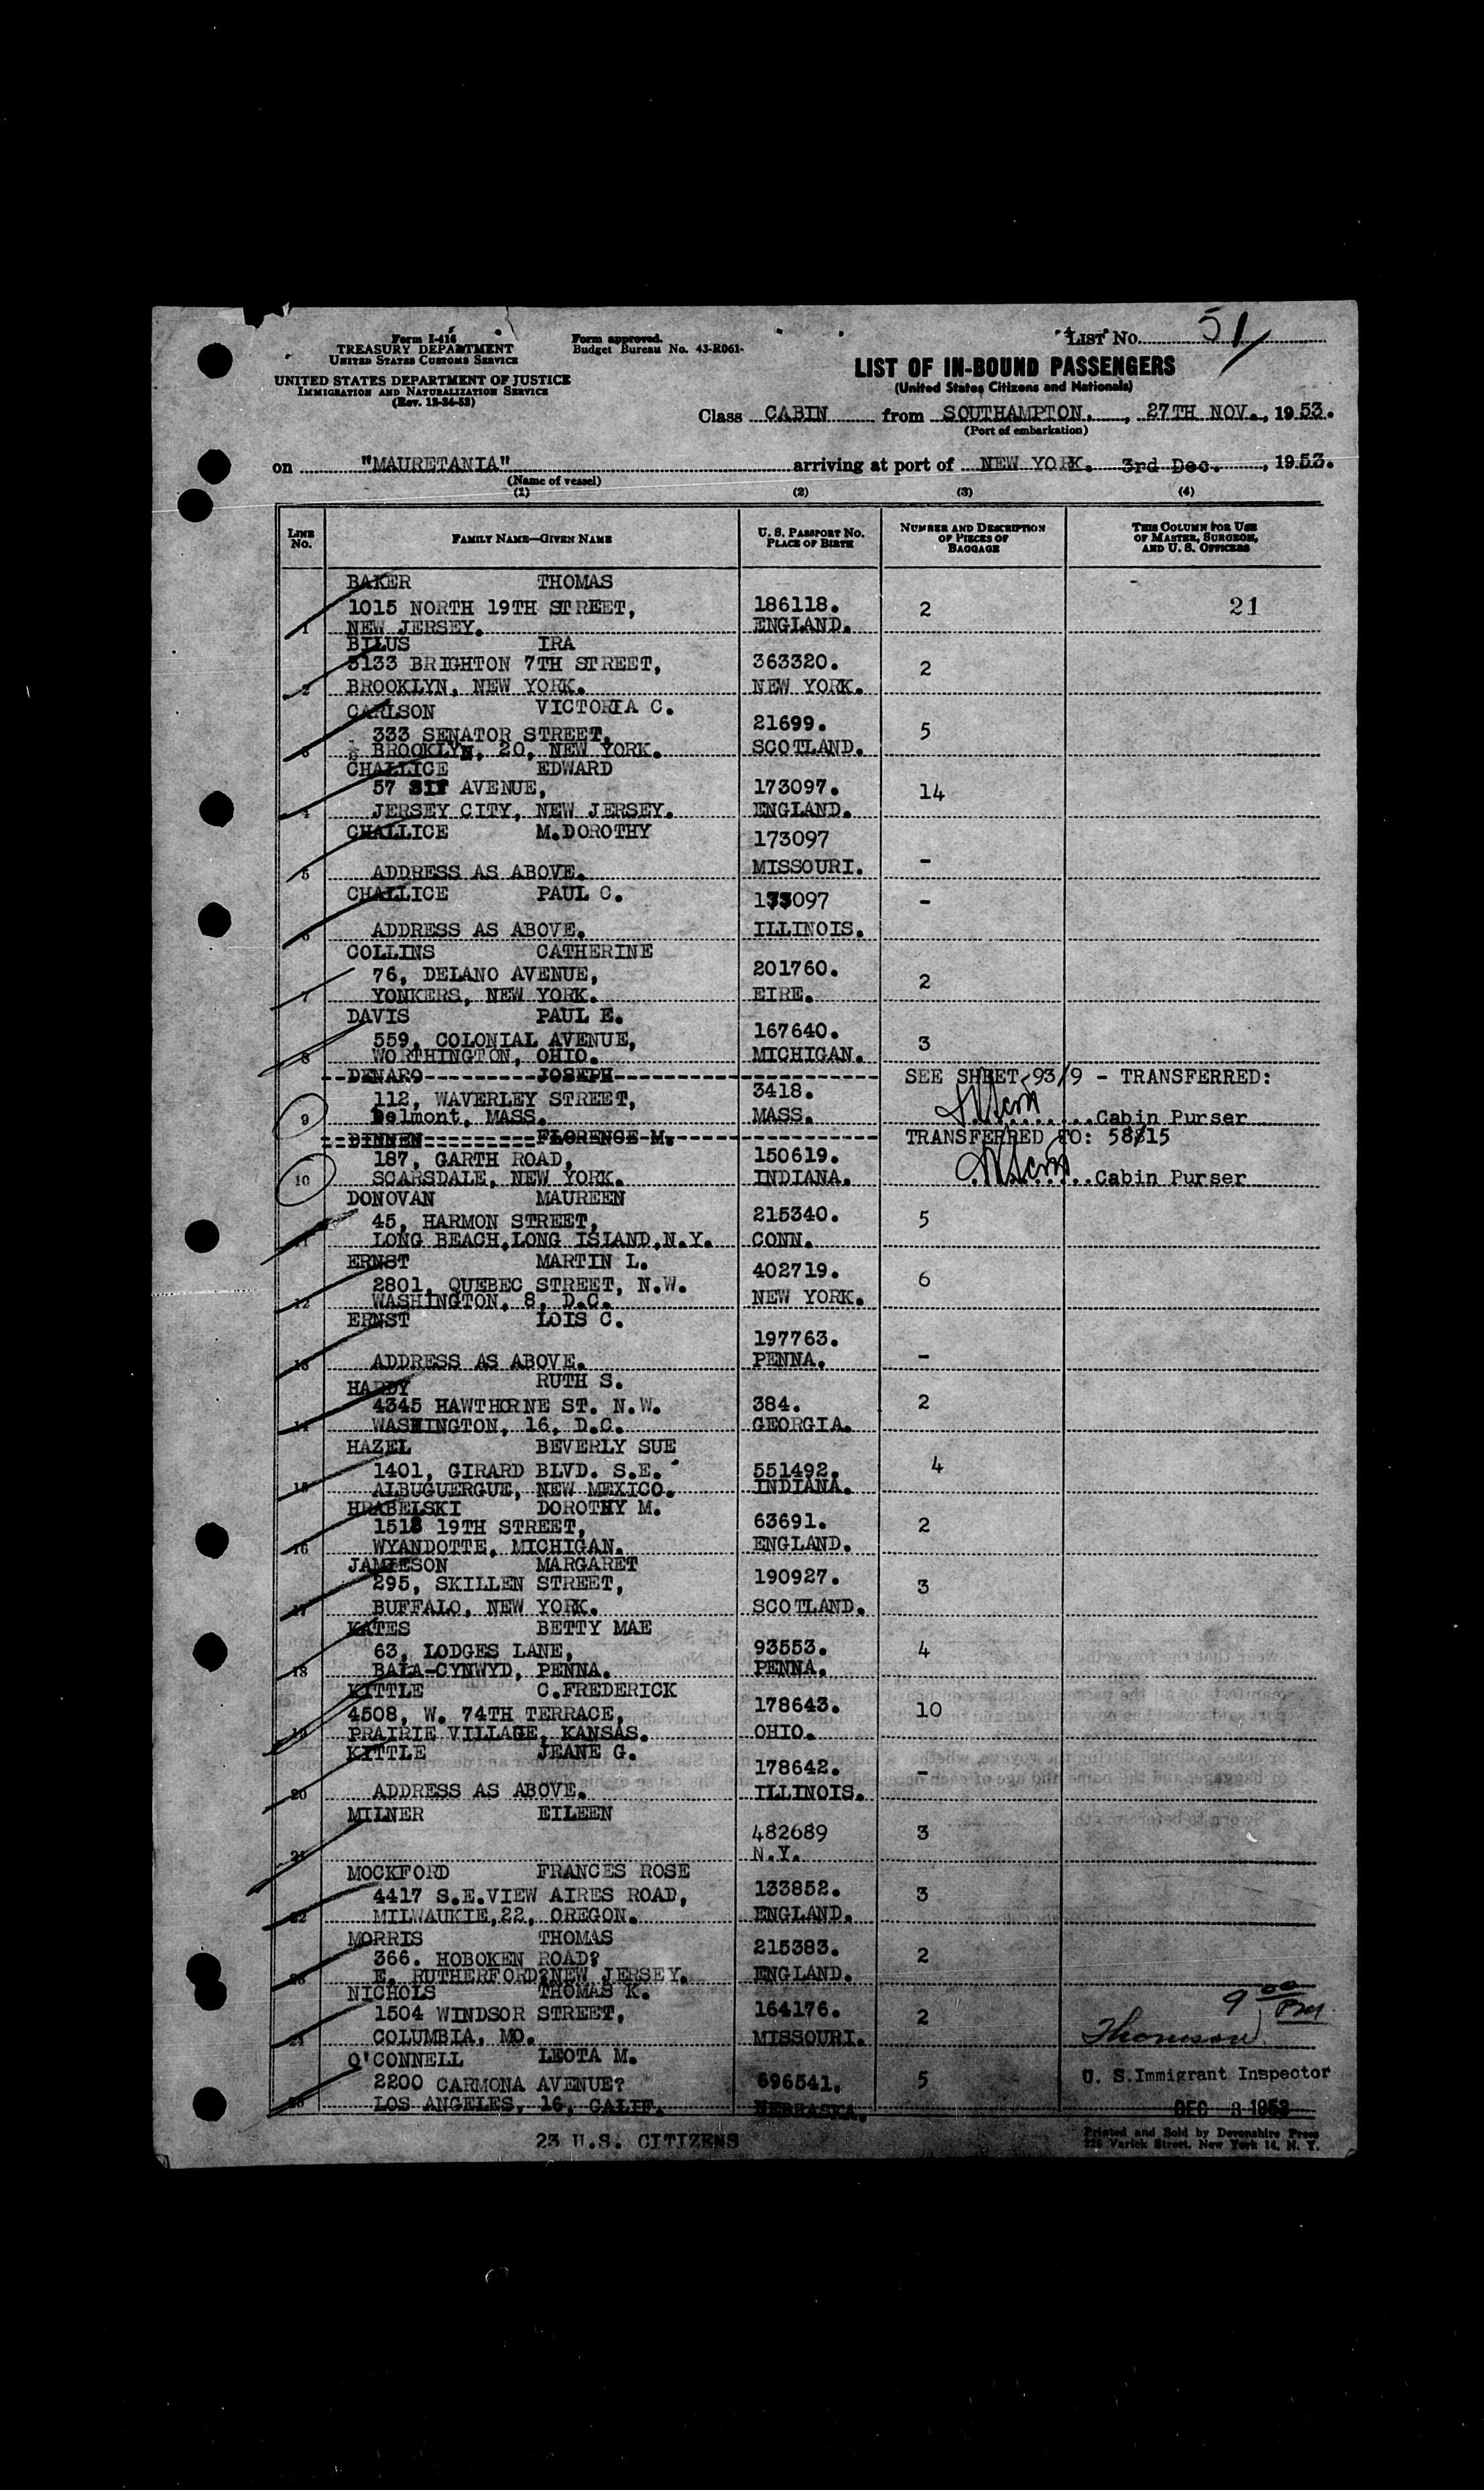 LIST NO. 51
Form I-416
TREASURY DEPARTMENT
UNITED STATES CUSTOMS SERVICE
Form approved.
Budget Bureau No. 43-R061-
UNITED STATES DEPARTMENT OF JUSTICE
IMMIGRATION AND NATURALIZATION SERVICE
(Rev. 12-24-52)
LIST OF IN-BOUND PASSENGERS
(United States Citizens and Nationals)
Class CABIN from SOUTHAMPTON. , 27TH NOV. , 1953.
(Port of embarkation)
on "MAURETANIA" arriving at port of NEW YORK. 3rd Dec. , 1953.
(Name of vessel)
(1) (2) (3) (4)
LINE NO. FAMILY NAME—GIVEN NAME U. S. PASSPORT NO. PLACE OF BIRTH NUMBER AND DESCRIPTION OF PIECES OF BAGGAGE THIS COLUMN FOR USE OF MASTER, SURGEON, AND U. S. OFFICERS
BAKER THOMAS
1015 NORTH 19TH STREET, 186118. 2 21
1 NEW JERSEY. ENGLAND.
BILUS IRA
3133 BRIGHTON 7TH STREET, 363320. 2
2 BROOKLYN, NEW YORK. NEW YORK.
CARLSON VICTORIA C.
333 SENATOR STREET, 21699. 5
3 BROOKLYN, 20, NEW YORK. SCOTLAND.
CHALLICE EDWARD
57 AVENUE, 173097. 14
4 JERSEY CITY, NEW JERSEY. ENGLAND.
CHALLICE M.DOROTHY 173097
5 ADDRESS AS ABOVE. MISSOURI. -
CHALLICE PAUL C. 173097 -
6 ADDRESS AS ABOVE. ILLINOIS.
COLLINS CATHERINE
76, DELANO AVENUE, 201760. 2
7 YONKERS, NEW YORK. EIRE.
DAVIS PAUL E.
559, COLONIAL AVENUE, 167640. 3
8 WORTHINGTON, OHIO. MICHIGAN.
DENARO JOSEPH SEE SHEET 93/9 - TRANSFERRED:
112, WAVERLEY STREET, 3418.
9 Belmont, MASS. MASS. Cabin Purser
DINNEN FLORENCE M. TRANSFERRED TO: 58/15
187, GARTH ROAD, 150619.
10 SCARSDALE, NEW YORK. INDIANA. Cabin Purser
DONOVAN MAUREEN
45, HARMON STREET, 215340. 5
11 LONG BEACH,LONG ISLAND,N.Y. CONN.
ERNST MARTIN L.
2801, QUEBEC STREET, N.W. 402719. 6
12 WASHINGTON, 8, D.C. NEW YORK.
ERNST LOIS C.
197763.
13 ADDRESS AS ABOVE. PENNA. -
HARDY RUTH S.
4345 HAWTHORNE ST. N.W. 384. 2
14 WASHINGTON, 16, D.C. GEORGIA.
HAZEL BEVERLY SUE
1401, GIRARD BLVD. S.E. 551492. 4
15 ALBUGUERGUE, NEW MEXICO. INDIANA.
HRABELSKI DOROTHY M.
1518 19TH STREET, 63691. 2
16 WYANDOTTE, MICHIGAN. ENGLAND.
JAMIESON MARGARET
295, SKILLEN STREET, 190927. 3
17 BUFFALO, NEW YORK. SCOTLAND.
KATES BETTY MAE
63, LODGES LANE, 93553. 4
18 BALA-CYNWYD, PENNA. PENNA.
KITTLE C.FREDERICK
4508, W. 74TH TERRACE, 178643. 10
19 PRAIRIE VILLAGE, KANSAS. OHIO.
KITTLE JEANE G.
178642. -
20 ADDRESS AS ABOVE. ILLINOIS.
MILNER EILEEN
482689 3
21 N.Y.
MOCKFORD FRANCES ROSE
4417 S.E.VIEW AIRES ROAD, 133852. 3
22 MILWAUKIE,22, OREGON. ENGLAND.
MORRIS THOMAS
366. HOBOKEN ROAD? 215383. 2
23 E. RUTHERFORD?NEW JERSEY. ENGLAND.
NICHOLS THOMAS K. 9 00 PM
1504 WINDSOR STREET, 164176. 2
24 COLUMBIA, MO. MISSOURI. Thomson
O'CONNELL LEOTA M.
2200 CARMONA AVENUE? 696541. 5 U. S. Immigrant Inspector
25 LOS ANGELES, 16, CALIF. NEBRASKA. DEC 3 1953
23 U.S. CITIZENS
Printed and Sold by Devonshire Press
225 Varick Street, New York 14, N. Y.